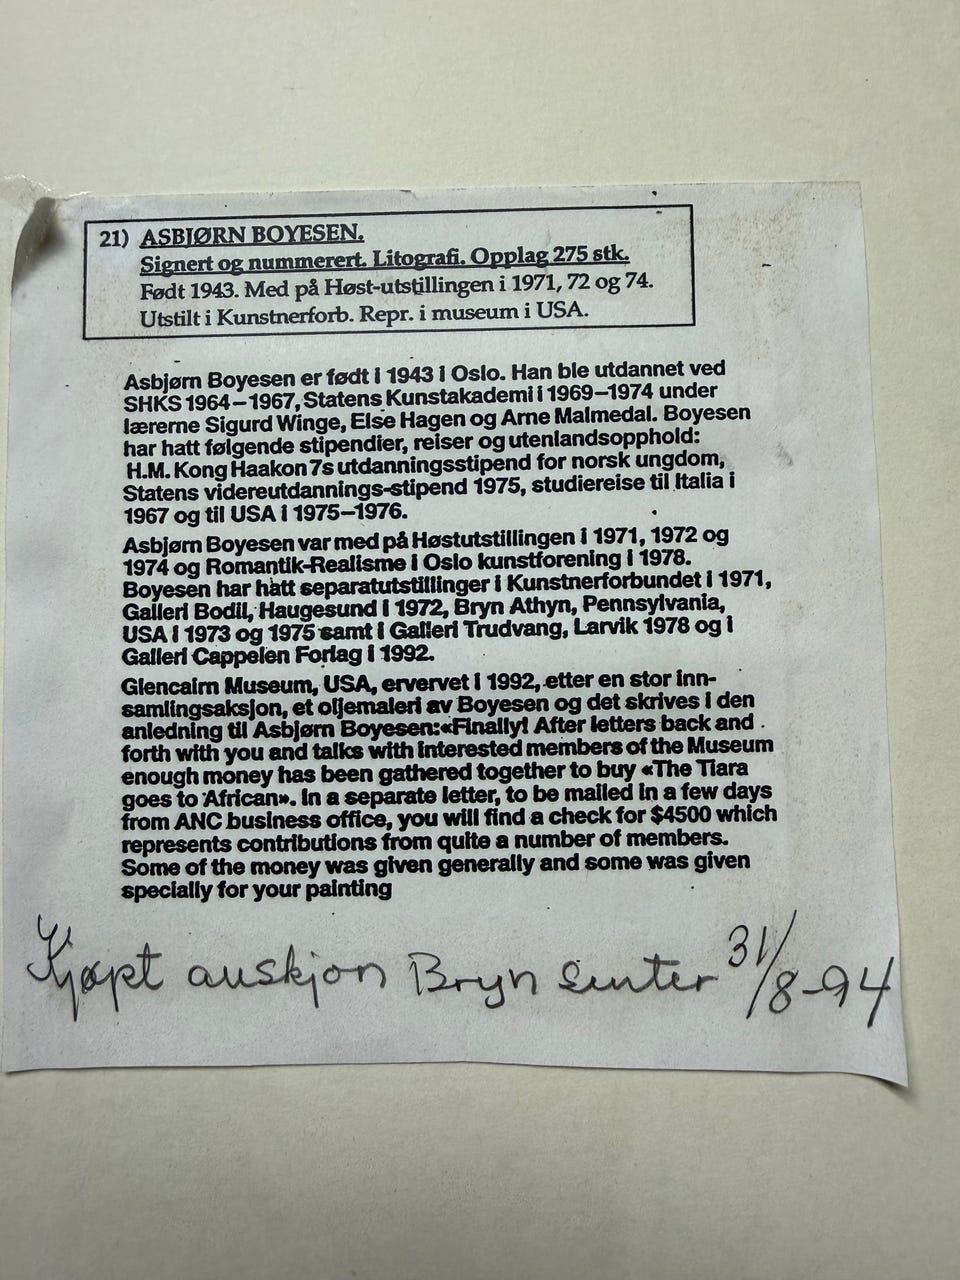 21) ASBJØRN BOYESEN.
Signert og nummerert. Litografi. Opplag 275 stk.
Født 1943. Med på Høst-utstillingen i 1971, 72 og 74.
Utstilt i Kunstnerforb. Repr. i museum i USA.
Asbjørn Boyesen er født i 1943 i Oslo. Han ble utdannet ved
SHKS 1964–1967, Statens Kunstakademi i 1969–1974 under
lærerne Sigurd Winge, Else Hagen og Arne Malmedal. Boyesen
har hatt følgende stipendier, reiser og utenlandsopphold:
H.M. Kong Haakon 7s utdanningsstipend for norsk ungdom,
Statens videreutdannings-stipend 1975, studiereise til Italia i
1967 og til USA i 1975–1976.
Asbjørn Boyesen var med på Høstutstillingen i 1971, 1972 og
1974 og Romantik-Realisme i Oslo kunstforening i 1978.
Boyesen har hatt separatutstillinger i Kunstnerforbundet i 1971,
Galleri Bodil, Haugesund i 1972, Bryn Athyn, Pennsylvania,
USA i 1973 og 1975 samt i Galleri Trudvang, Larvik 1978 og i
Galleri Cappelen Forlag i 1992.
Glencairn Museum, USA, ervervet i 1992, etter en stor inn-
samlingsaksjon, et oljemaleri av Boyesen og det skrives i den
anledning til Asbjørn Boyesen: «Finally! After letters back and
forth with you and talks with interested members of the Museum
enough money has been gathered together to buy «The Tiara
goes to African». In a separate letter, to be mailed in a few days
from ANC business office, you will find a check for $4500 which
represents contributions from quite a number of members.
Some of the money was given generally and some was given
specially for your painting
Kjøpt auskjon Bryn Senter 31/8-94